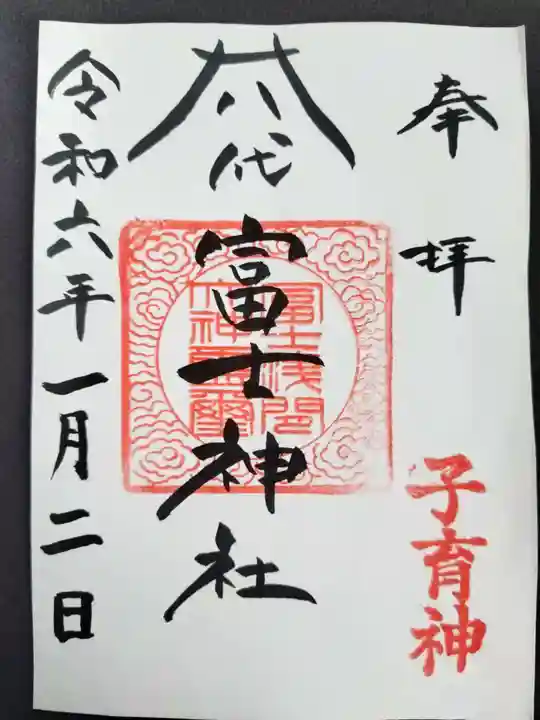 奉拝
子育神
八代富士神社
富士浅間
大神霊璽
令和六年一月二日